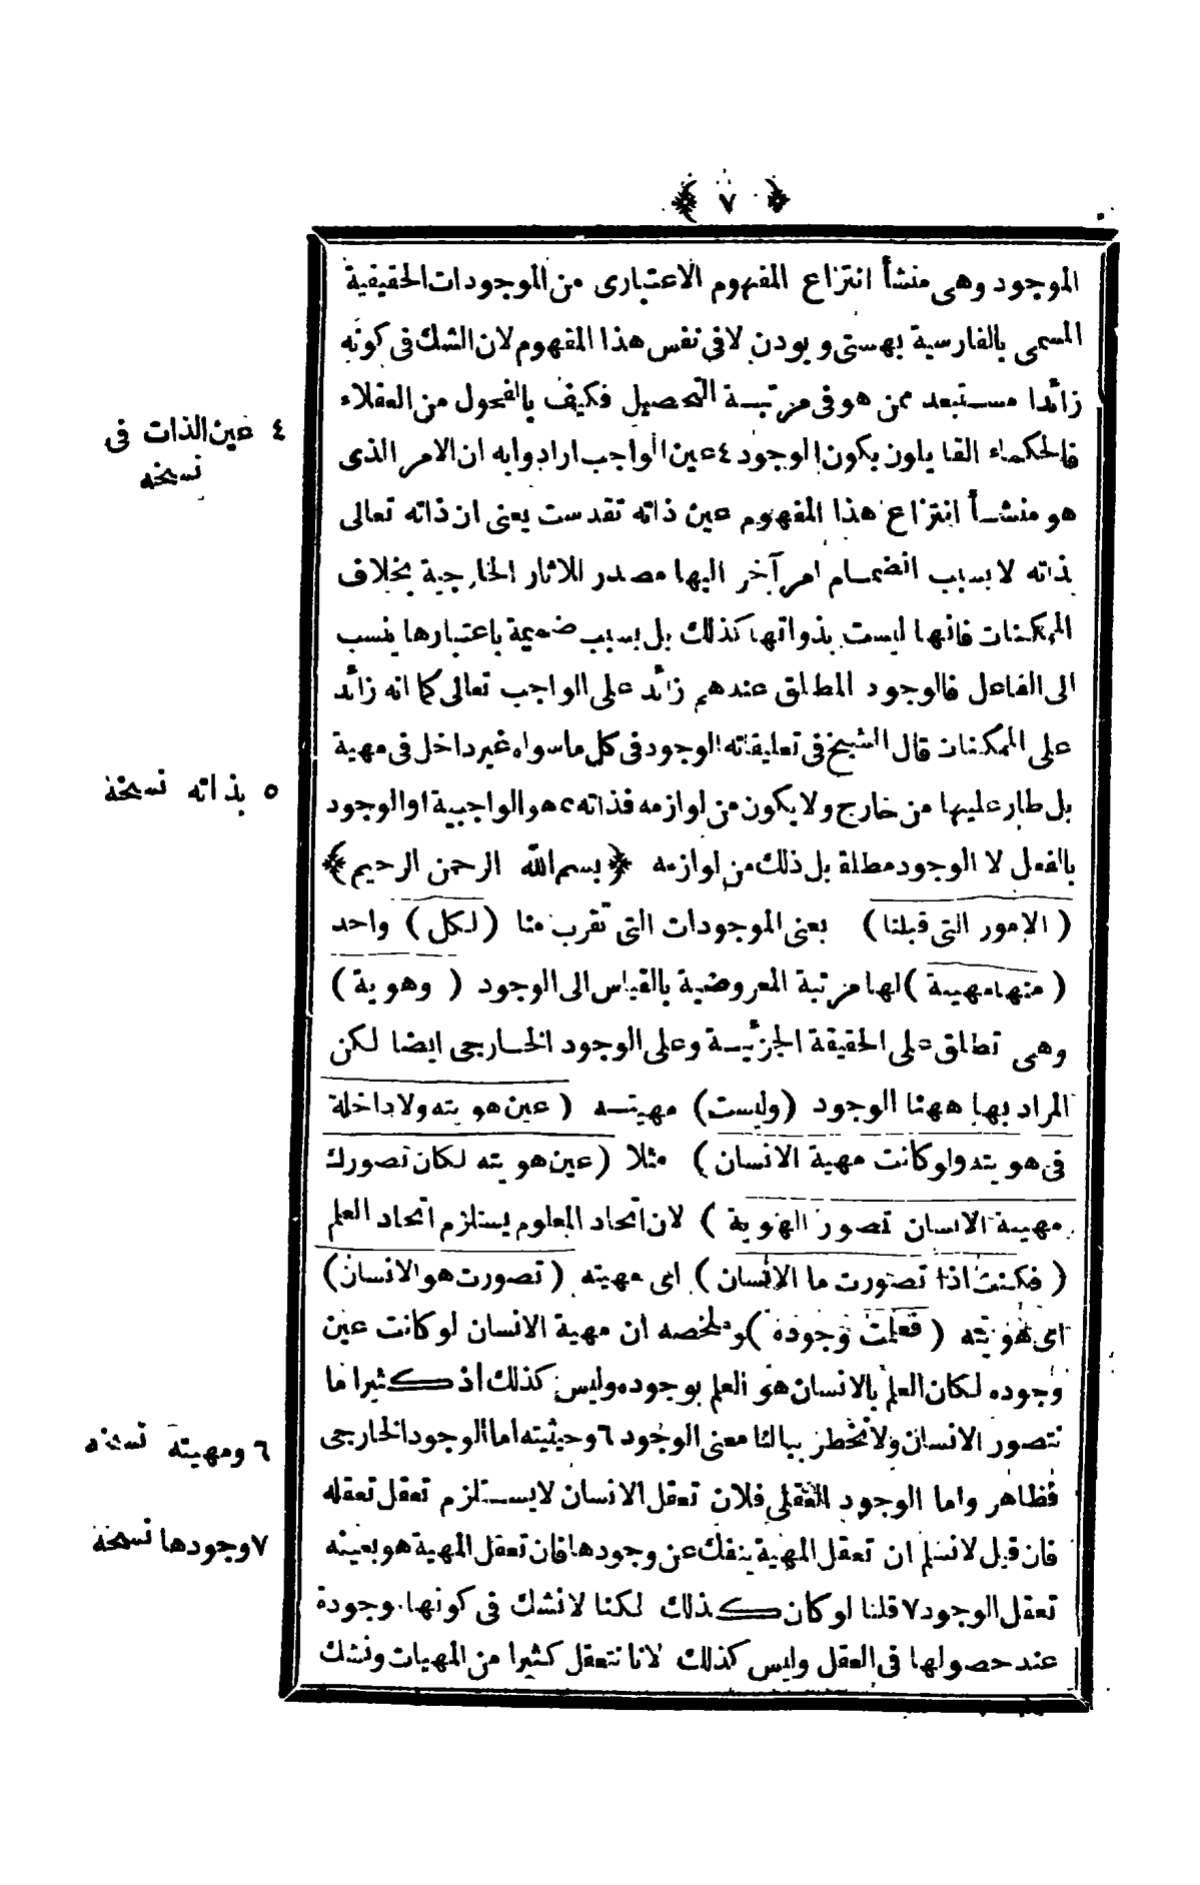 ﴿ ٧ ﴾
الموجود وهى منشأ انتزاع المفهوم الاعتبارى من الموجودات الحقيقية
المسمى بالفارسية بهستى وبودن لافى نفس هذا المفهوم لان الشك فى كونه
زائدا مستبعد ممن هو فى مرتبة التحصيل فكيف بالفحول من العقلاء
فالحكماء القايلون بكون الوجود ٤ عين الواجب ارادوا به ان الامر الذى
هو منشأ انتزاع هذا المفهوم عين ذاته تقدست يعنى ان ذاته تعالى
بذاته لا بسبب انضمام امر آخر اليها مصدر للاثار الخارجية بخلاف
الممكنات فانها ليست بذواتها كذلك بل بسبب ضميمة باعتبارها ينسب
الى الفاعل فالوجود المطلق عندهم زائد على الواجب تعالى كما انه زائد
على الممكنات قال الشيخ فى تعليقاته الوجود فى كل ماسواه غير داخل فى مهية
بل طار عليها من خارج ولا يكون من لوازمه فذاته ٥ هو الواجبية او الوجود
بالفعل لا الوجود مطلقا بل ذلك من لوازمه ﴿ بسم الله الرحمن الرحيم ﴾
( الامور التى قبلنا ) يعنى الموجودات التى تقرب منا ( لكل ) واحد
( منها مهية ) لها مرتبة المعروضية بالقياس الى الوجود ( وهوية )
وهى تطلق على الحقيقة الجزئية وعلى الوجود الخارجى ايضا لكن
المراد بها ههنا الوجود ( وليست ) مهيته ( عين هويته ولا داخلة
فى هويته ولو كانت مهية الانسان ) مثلا ( عين هويته لكان تصورك
مهية الانسان تصور الهوية ) لان اتحاد المعلوم يستلزم اتحاد العلم
( فكنت اذا تصورت ما الانسان ) اى مهيته ( تصورت هو الانسان )
اى هويته ( فعلمت وجوده ) وملخصه ان مهية الانسان لو كانت عين
وجوده لكان العلم بالانسان هو العلم بوجوده وليس كذلك اذ كثيرا ما
نتصور الانسان ولا يخطر ببالنا معنى الوجود ٦ وحيثيته اما الوجود الخارجى
فظاهر واما الوجود العقلى فلان تعقل الانسان لا يستلزم تعقل تعقله
فان قيل لانسلم ان تعقل المهية ينفك عن وجودها فان تعقل المهية هو بعينه
تعقل الوجود ٧ قلنا لو كان كذلك لكنا لانشك فى كونها موجودة
عند حصولها فى العقل وليس كذلك لانا نتعقل كثيرا من المهيات ونشك
٤ عين الذات فى
نسخه
٥ بذاته نسخة
٦ ومهيته نسخه
٧ وجودها نسخة